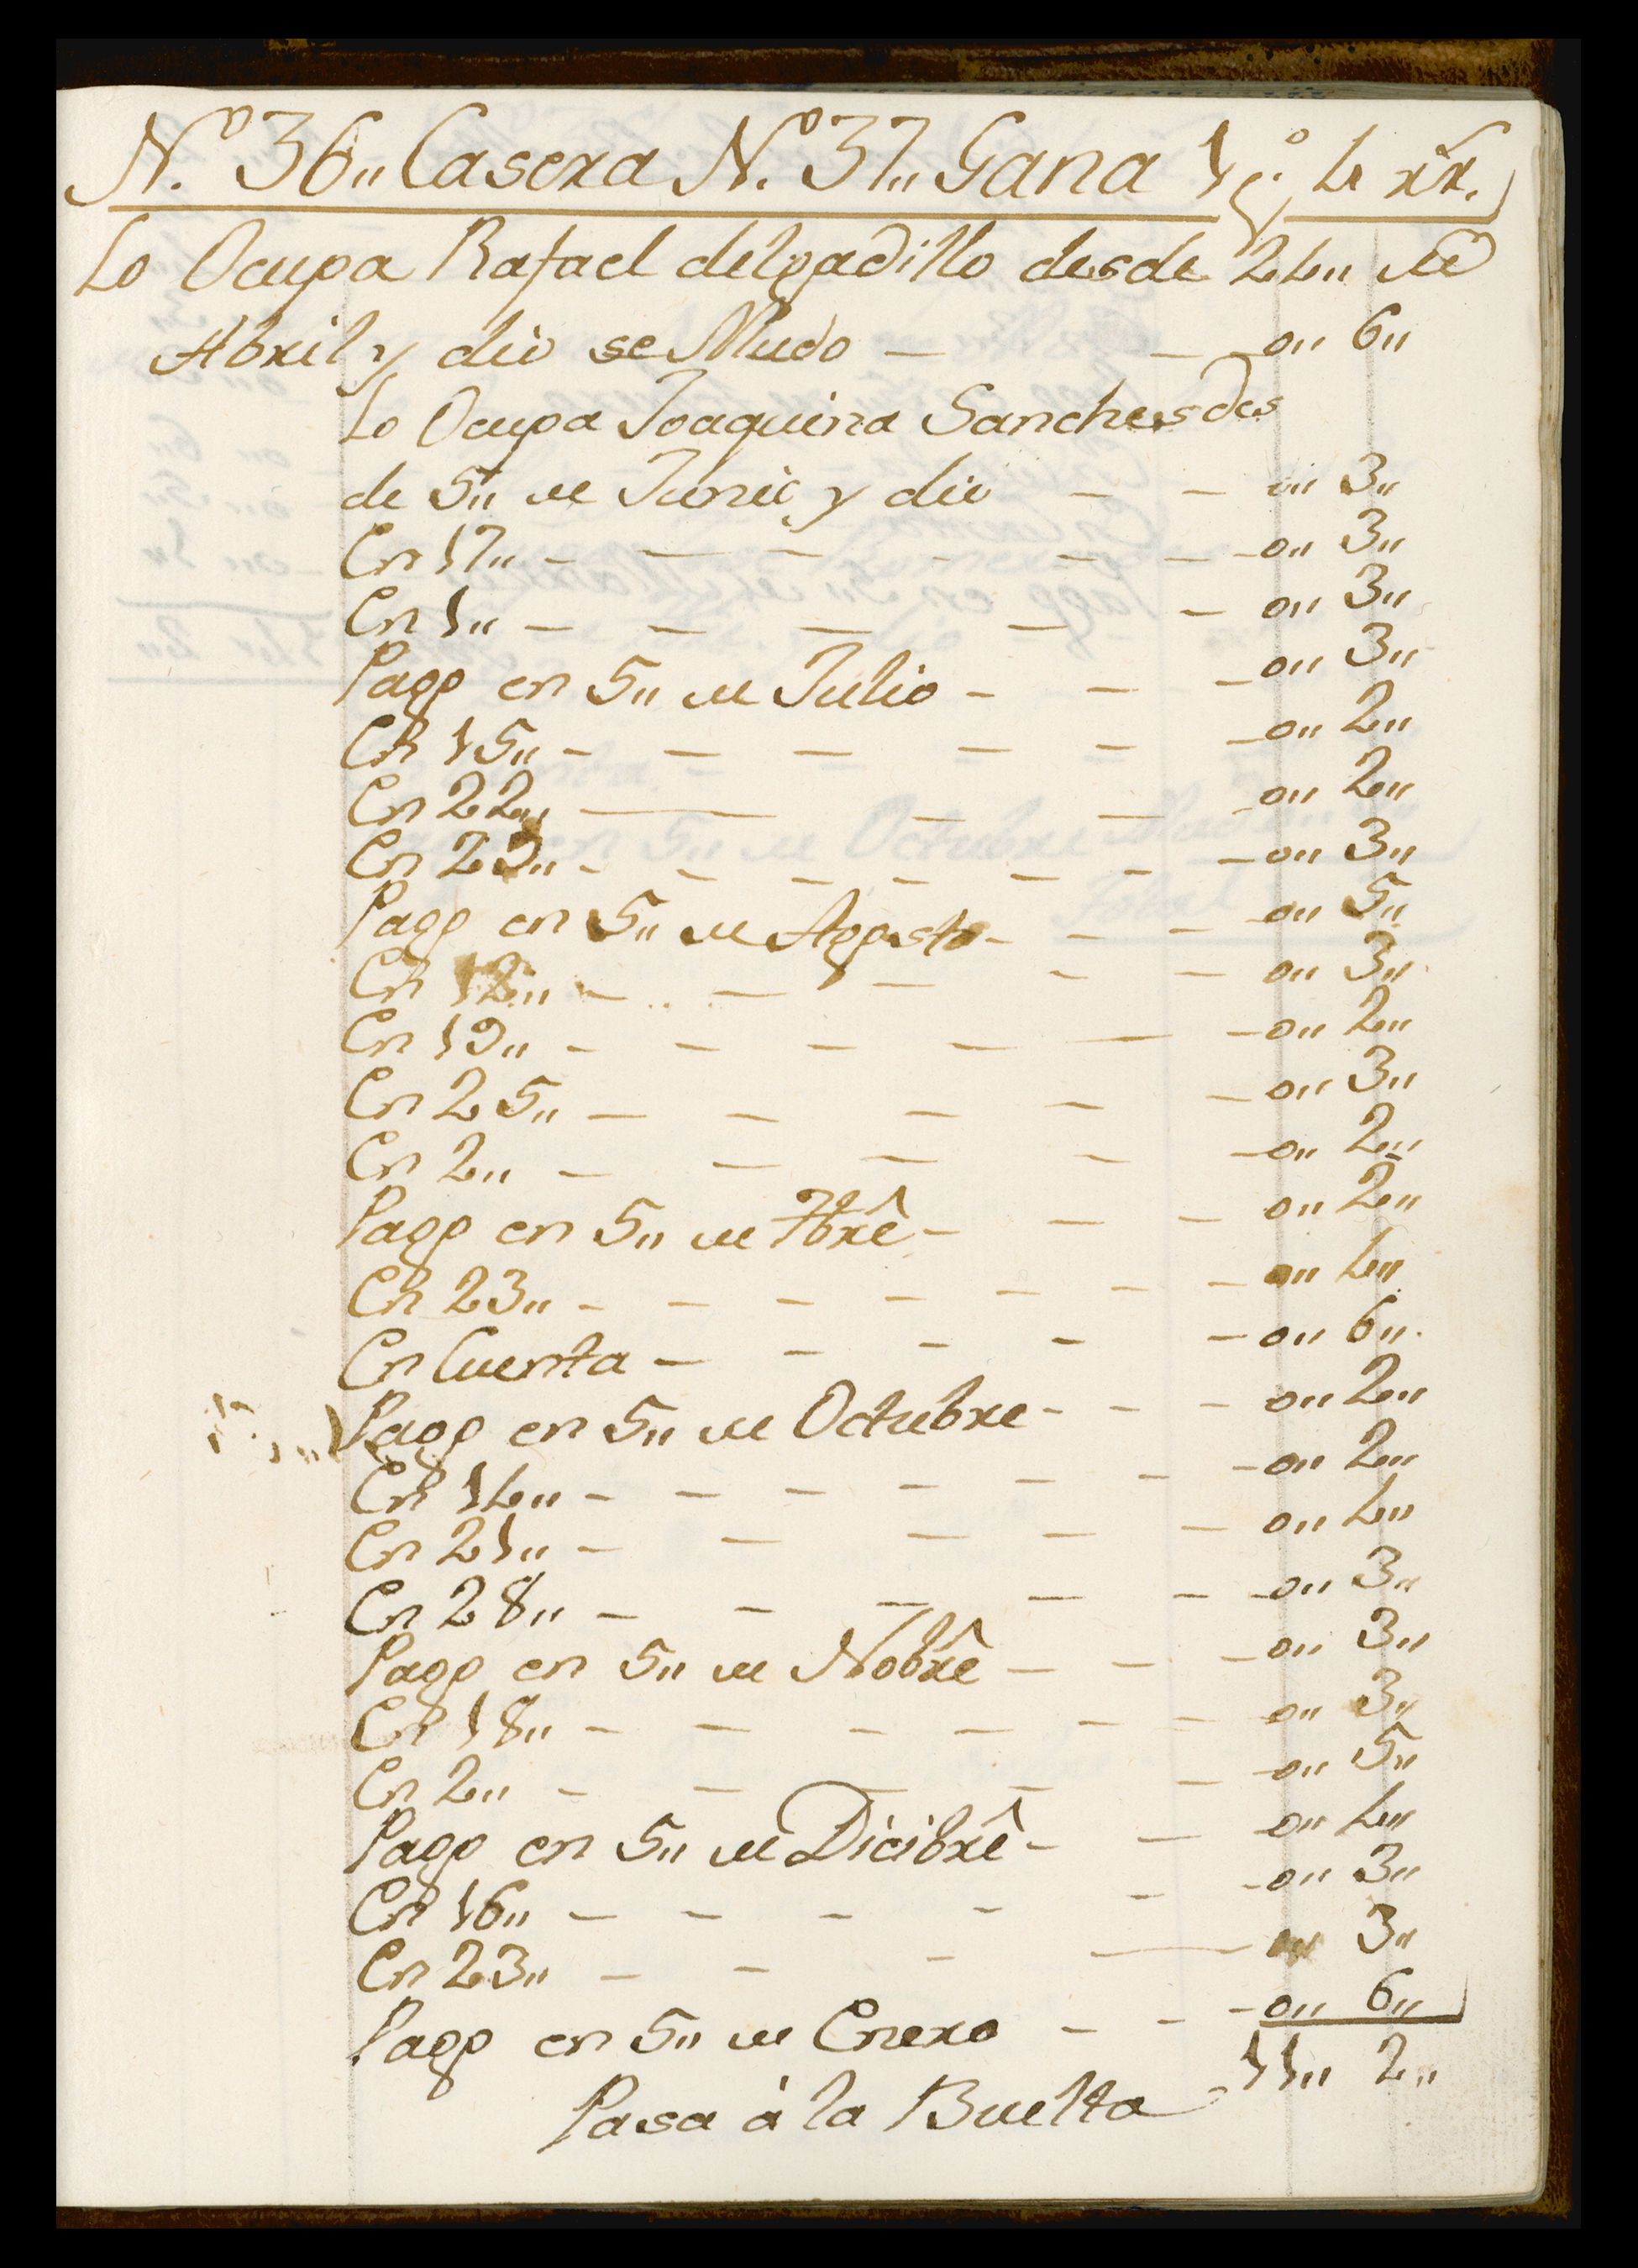 N.º 36,, Casera N.º 37,, Gana 1 p.º 4 rr.
Lo Ocupa Rafael delgadillo desde 24,, de
Abril y dio se Mudo — — 0,, 6,,
Lo Ocupa Joaquina Sanches des
de 5,, de Junio y dio — — 0,, 3,,
En 17,, — — — — — — 0,, 3,,
En 1,, — — — — — 0,, 3,,
Pago en 5,, de Julio — — — 0,, 3,,
En 15,, — — — — — — 0,, 2,,
En 22,, — — — — 0,, 2,,
En 29,, — — — — — — — 0,, 3,,
Pago en 5,, de Agosto — — — 0,, 5,,
En 12,, — — — — — 0,, 3,,
En 19,, — — — — — — 0,, 2,,
En 25,, — — — — — 0,, 3,,
En 2,, — — — — — 0,, 2,,
Pago en 5,, de 7brê — — — 0,, 2,,
En 23,, — — — — — — — 0,, 4,,
En Cuenta — — — — — 0,, 6,,
Pago en 5,, de Octubre — — — 0,, 2,,
En 14,, — — — — — — — 0,, 2,,
En 21,, — — — — — 0,, 4,,
En 28,, — — — — — 0,, 3,,
Pago en 5,, de Nobrê — — — 0,, 3,,
En 18,, — — — — — — 0,, 3,,
En 2,, — — — — — 0,, 5,,
Pago en 5,, de Dicibrê — — 0,, 4,,
En 16,, — — — — — — 0,, 3,,
En 23,, — — — — 0,, 3,,
Pago en 5,, de Enero — — — 0,, 6,,
Pasa à la Buelta - 11,, 2,,